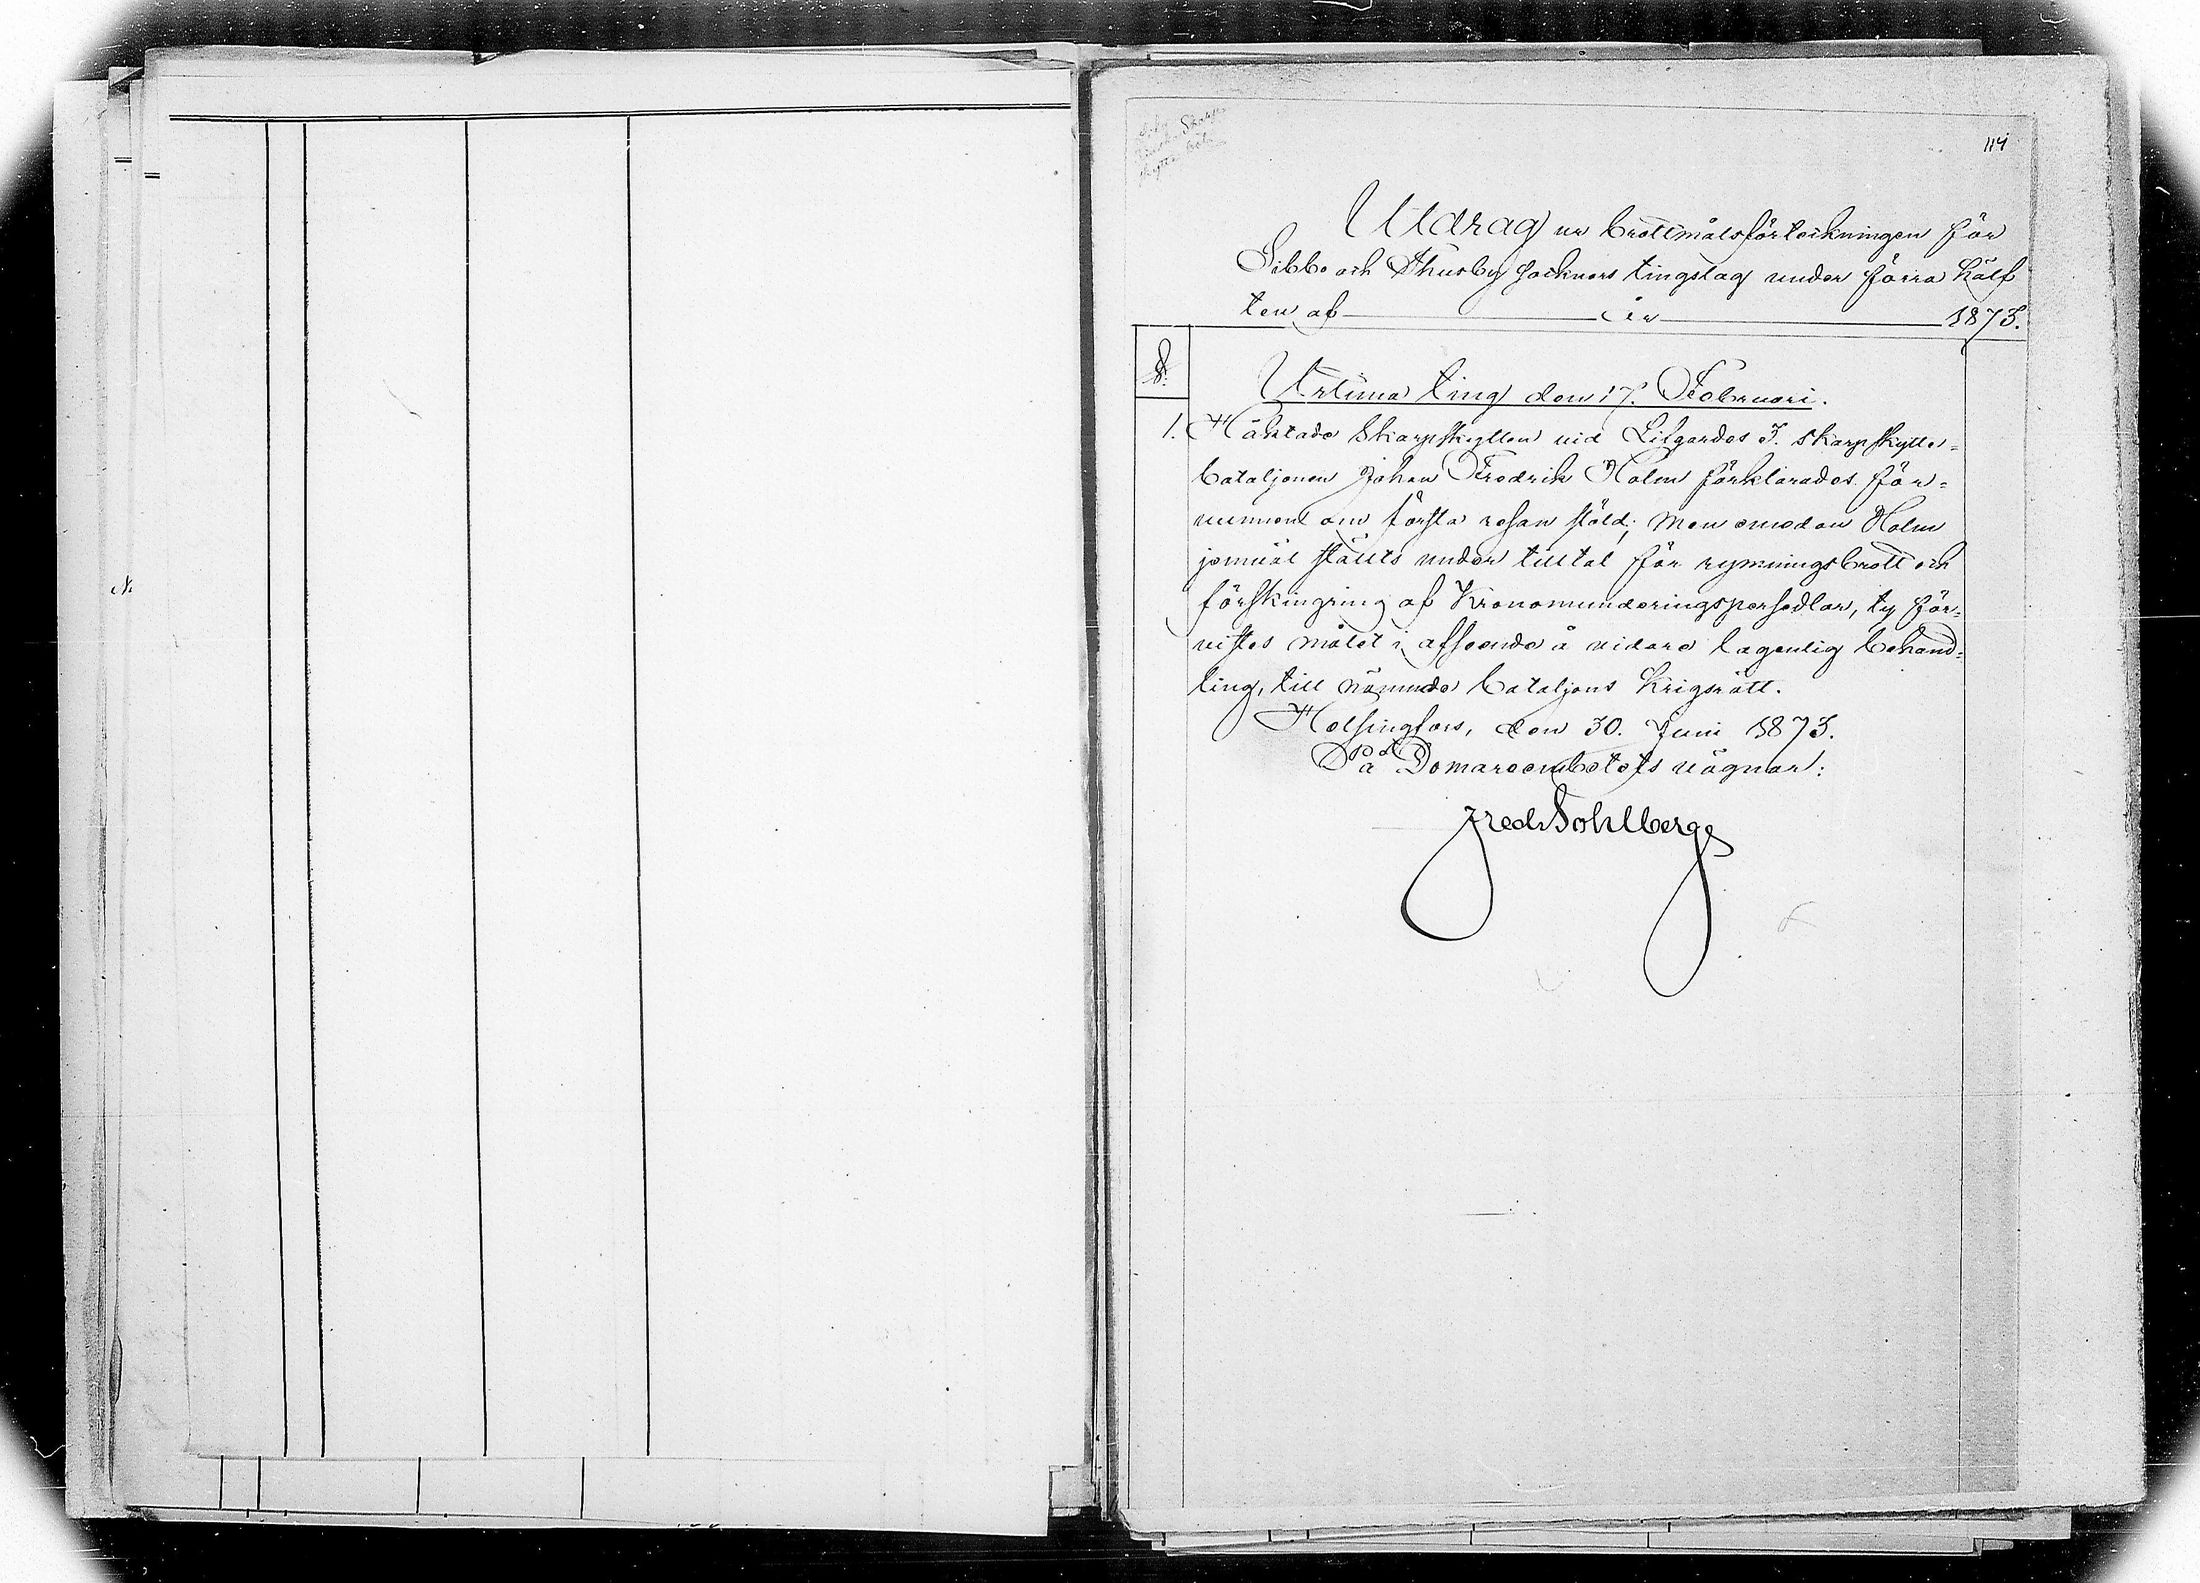 114
Utdrag ur brottmålsförteckningen för
Sibbo och Thusby socknars tingslag under förra hälf
ten af år 1873.
§.
Urtima ting den 17. Februari.
1. Häktade Skarpskytten vid Lifgardes 3. skarpskytte-
bataljonen Johan Fredrik Holm förklarades för-
vunnen om första resan stöld; men emedan Holm
jemväl stälts under tilltal för rymningsbrott och
förskingring af Kronomunderingspersedlar, ty för-
vistes målet i afseende å vidare lagenlig behand-
ling, till nämnde bataljons Krigsrätt.
Helsingfors, den 30. Juni 1873.
På Domareembetets vägnar:
Fred. Sohlberg